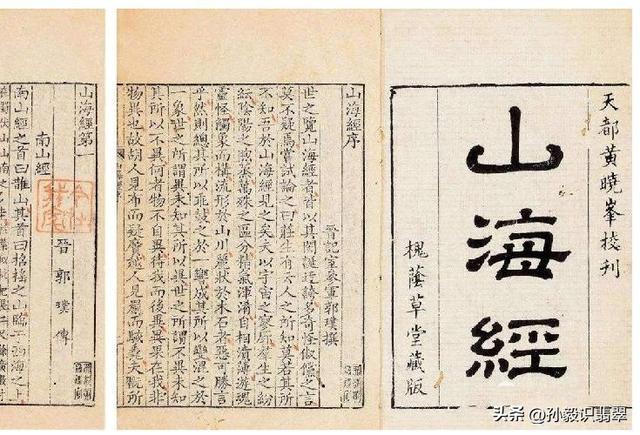 天都黃曉峯校刊
山海經
槐蔭草堂藏版
山海經序
晉記室參軍郭璞撰
世之覽山海經者皆以其閎誕迂誇多奇怪俶儻之言
莫不疑焉嘗試論之曰莊生有云人之所知莫若其所
不知吾於山海經見之矣夫以宇宙之寥廓羣生之紛
紜陰陽之煦蒸萬殊之區分精氣渾淆自相濆薄遊魂
靈怪觸象而構流形於山川麗狀於木石者惡可勝言
乎然則總其所以乖鼓之於一響成其所以變混之於
一象世之所謂異未知其所以異世之所謂不異未知
其所以不異何者物不自異待我而後異異果在我非
物異也故胡人見布而疑黂越人見罽而駭毳夫翫所
山海經第一
晉郭璞傳
南山經
南山經之首曰䧿山其首曰招搖之山臨于西海之上
头条 @孙毅识翡翠